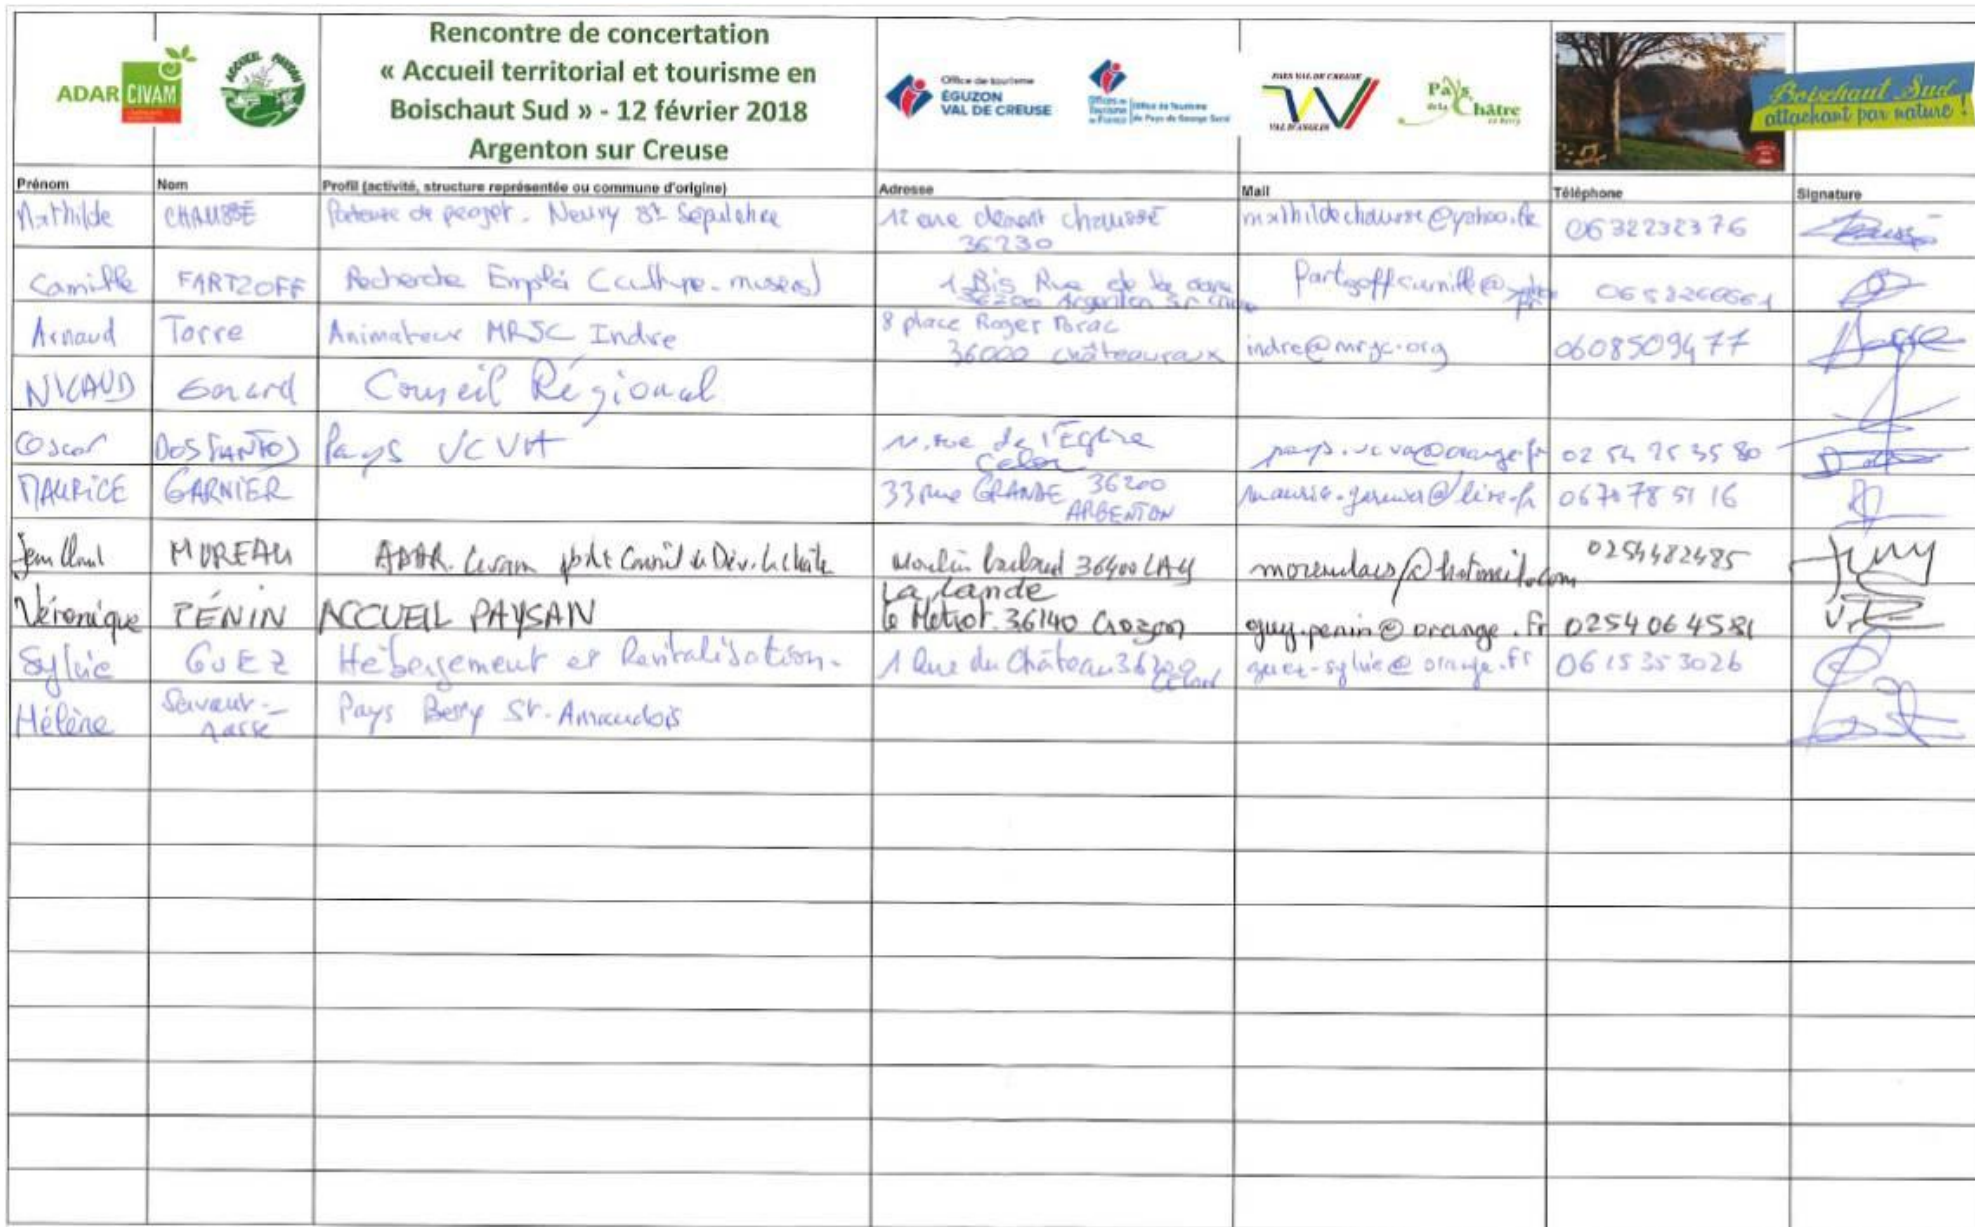 ADAR CIVAM
ACCUEIL PAYSAN
Rencontre de concertation
« Accueil territorial et tourisme en
Boischaut Sud » - 12 février 2018
Argenton sur Creuse
Office de tourisme
ÉGUZON
VAL DE CREUSE
Offices de Tourisme de France
Office de Tourisme
du Pays de George Sand
PAYS VAL DE CREUSE
VAL D'ANGLIN
Pays de la Châtre en Berry
Boischaut Sud
attachant par nature !
Prénom Nom Profil (activité, structure représentée ou commune d'origine) Adresse Mail Téléphone Signature
Mathilde CHAUSSÉ Porteuse de projet - Neuvy St Sépulchre 12 rue clément chaussé 36230 mathildechausse@yahoo.fr 0632232376
Camille FARTZOFF Recherche Emploi (culture-musées) 1 Bis Rue de la 36200 Argenton sur
Arnaud Torre Animateur MRJC Indre 8 place Roger 36000 châteauroux indre@mrjc.org 0608509477
NICAUD Gérard Conseil Régional
Oscar DOS SANTOS Pays VCVA rue de l'Église Celon pays.vcva@orange.fr 02 54 25 35 80
MAURICE GARNIER 33 rue GRANDE 36200 ARGENTON maurice.garnier@live.fr 0670 78 51 16
Jean Claude MOREAU ADAR. Civam pdt Conseil de Dév. La Châtre Moulin 36400 moreudacs@hotmail.com 0254482485
Véronique PÉNIN ACCUEIL PAYSAN La Lande le Metrot 36140 Crozon guy.penin@orange.fr 0254064581
Sylvie GUEZ Hébergement et Revitalisation. 1 Rue du Château 36200 Celon guez-sylvie@orange.fr 0615353026
Hélène Savaut- Pays Berry St-Amandois